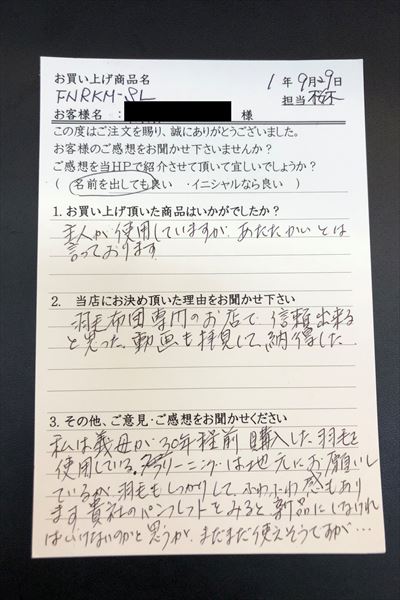 お買い上げ商品名
1 年 9月29日
FNRKM-SL
担当 桜木
お客様名 : 様
この度はご注文を賜り、誠にありがとうございました。
お客様のご感想をお聞かせ下さいませんか?
ご感想を当HPで紹介させて頂いて宜しいでしょうか?
( 名前を出しても良い ・イニシャルなら良い )
1. お買い上げ頂いた商品はいかがでしたか?
主人が使用していますが、あたたかいとは
言っております
2. 当店にお決め頂いた理由をお聞かせ下さい
羽毛布団専門のお店で、信頼出来る
と思った。動画も拝見して、納得した
3. その他、ご意見・ご感想をお聞かせください
私は義母が30年程前、購入した羽毛を
使用している。クリーニングは地元にお願いし
ているが、羽毛もしっかりして、ふわふわ感もあり
ます 貴社のパンフレットをみると新品にしなければ
はいけないのかと思うが、まだまだ使えそうですが…